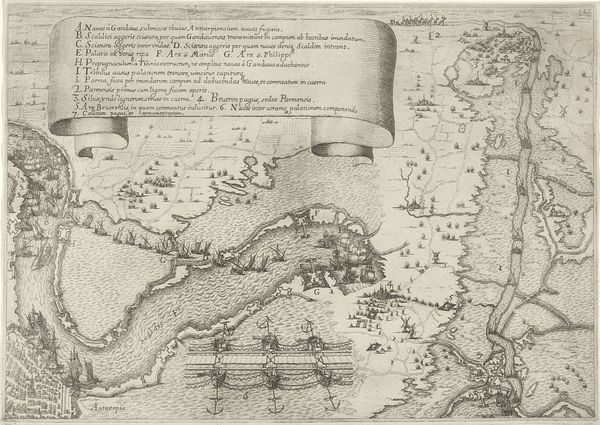 A. Naues à Gandauo submissæ obuias Antuerpiensium naues fugant.
B. Scaldici aggeris scissura, per quam Gandauenses transmittunt in campum ab hostibus inundatum.
C. Scissura aggeris inter vndas. D. Scissura aggeris per quam naues denuo Scaldim intrant.
E. Palatio ex vtraq ripa F. Arx S. Mariæ G. Arx S. Philippi
H. Propugnaculum à Tilinio extructum, ne amplius naues à Gandauo aducantur
I. Telinius ausus palationem transire, vincitur capitur
1. Parmæ fossa per inundatum campum ad deducendas naues, et commeatum in castra
2. Parmensis primus cum ligone fossam aperit.
3. Silua, vnde lignorum strues in castra. 4. Beueren pagus, sedes Parmensis.
5. Arx Beuerensis, in quam commeatus inducitur. 6. Naues inter
7. Calloum pagus, et
Antuerpia